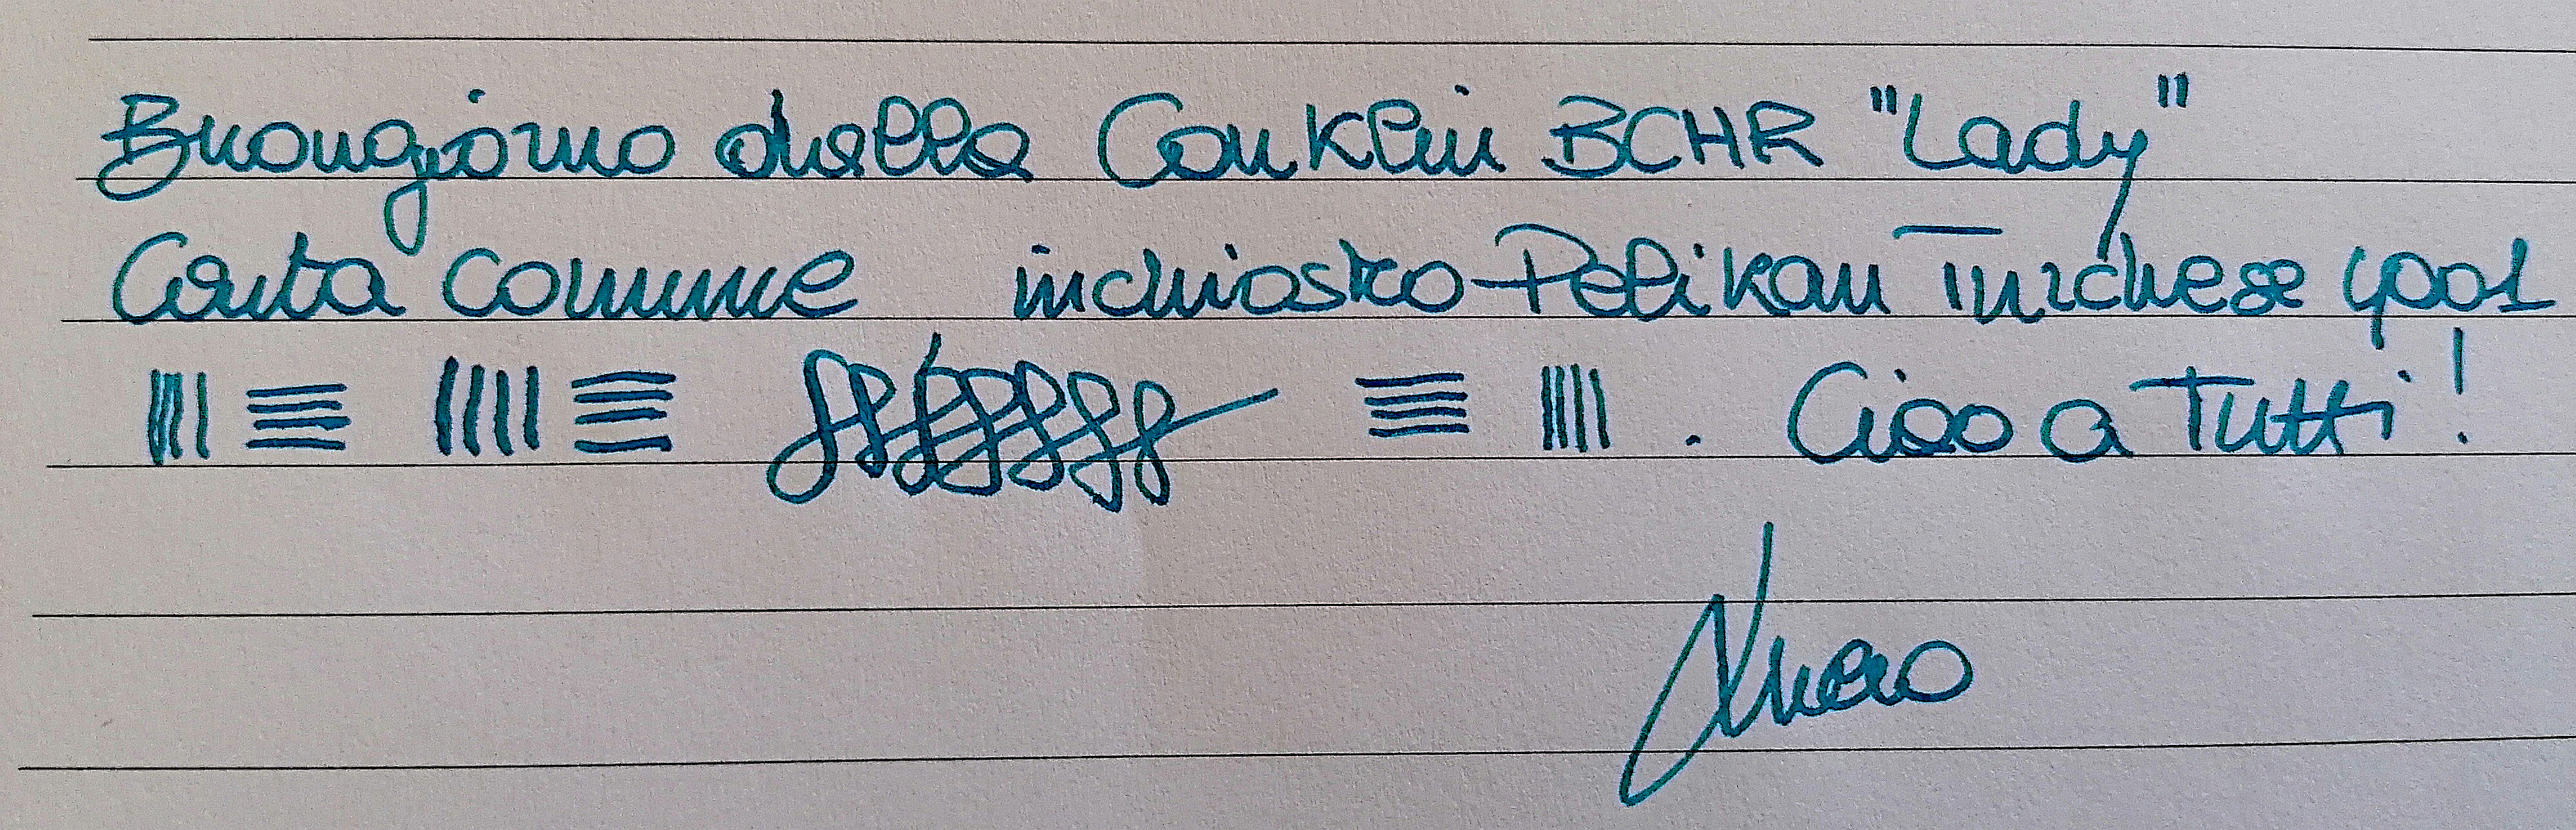 Buongiorno dalla Conklin BCHR "Lady"
Carta comune inchiostro Pelikan Turchese 4001
. Ciao a Tutti!